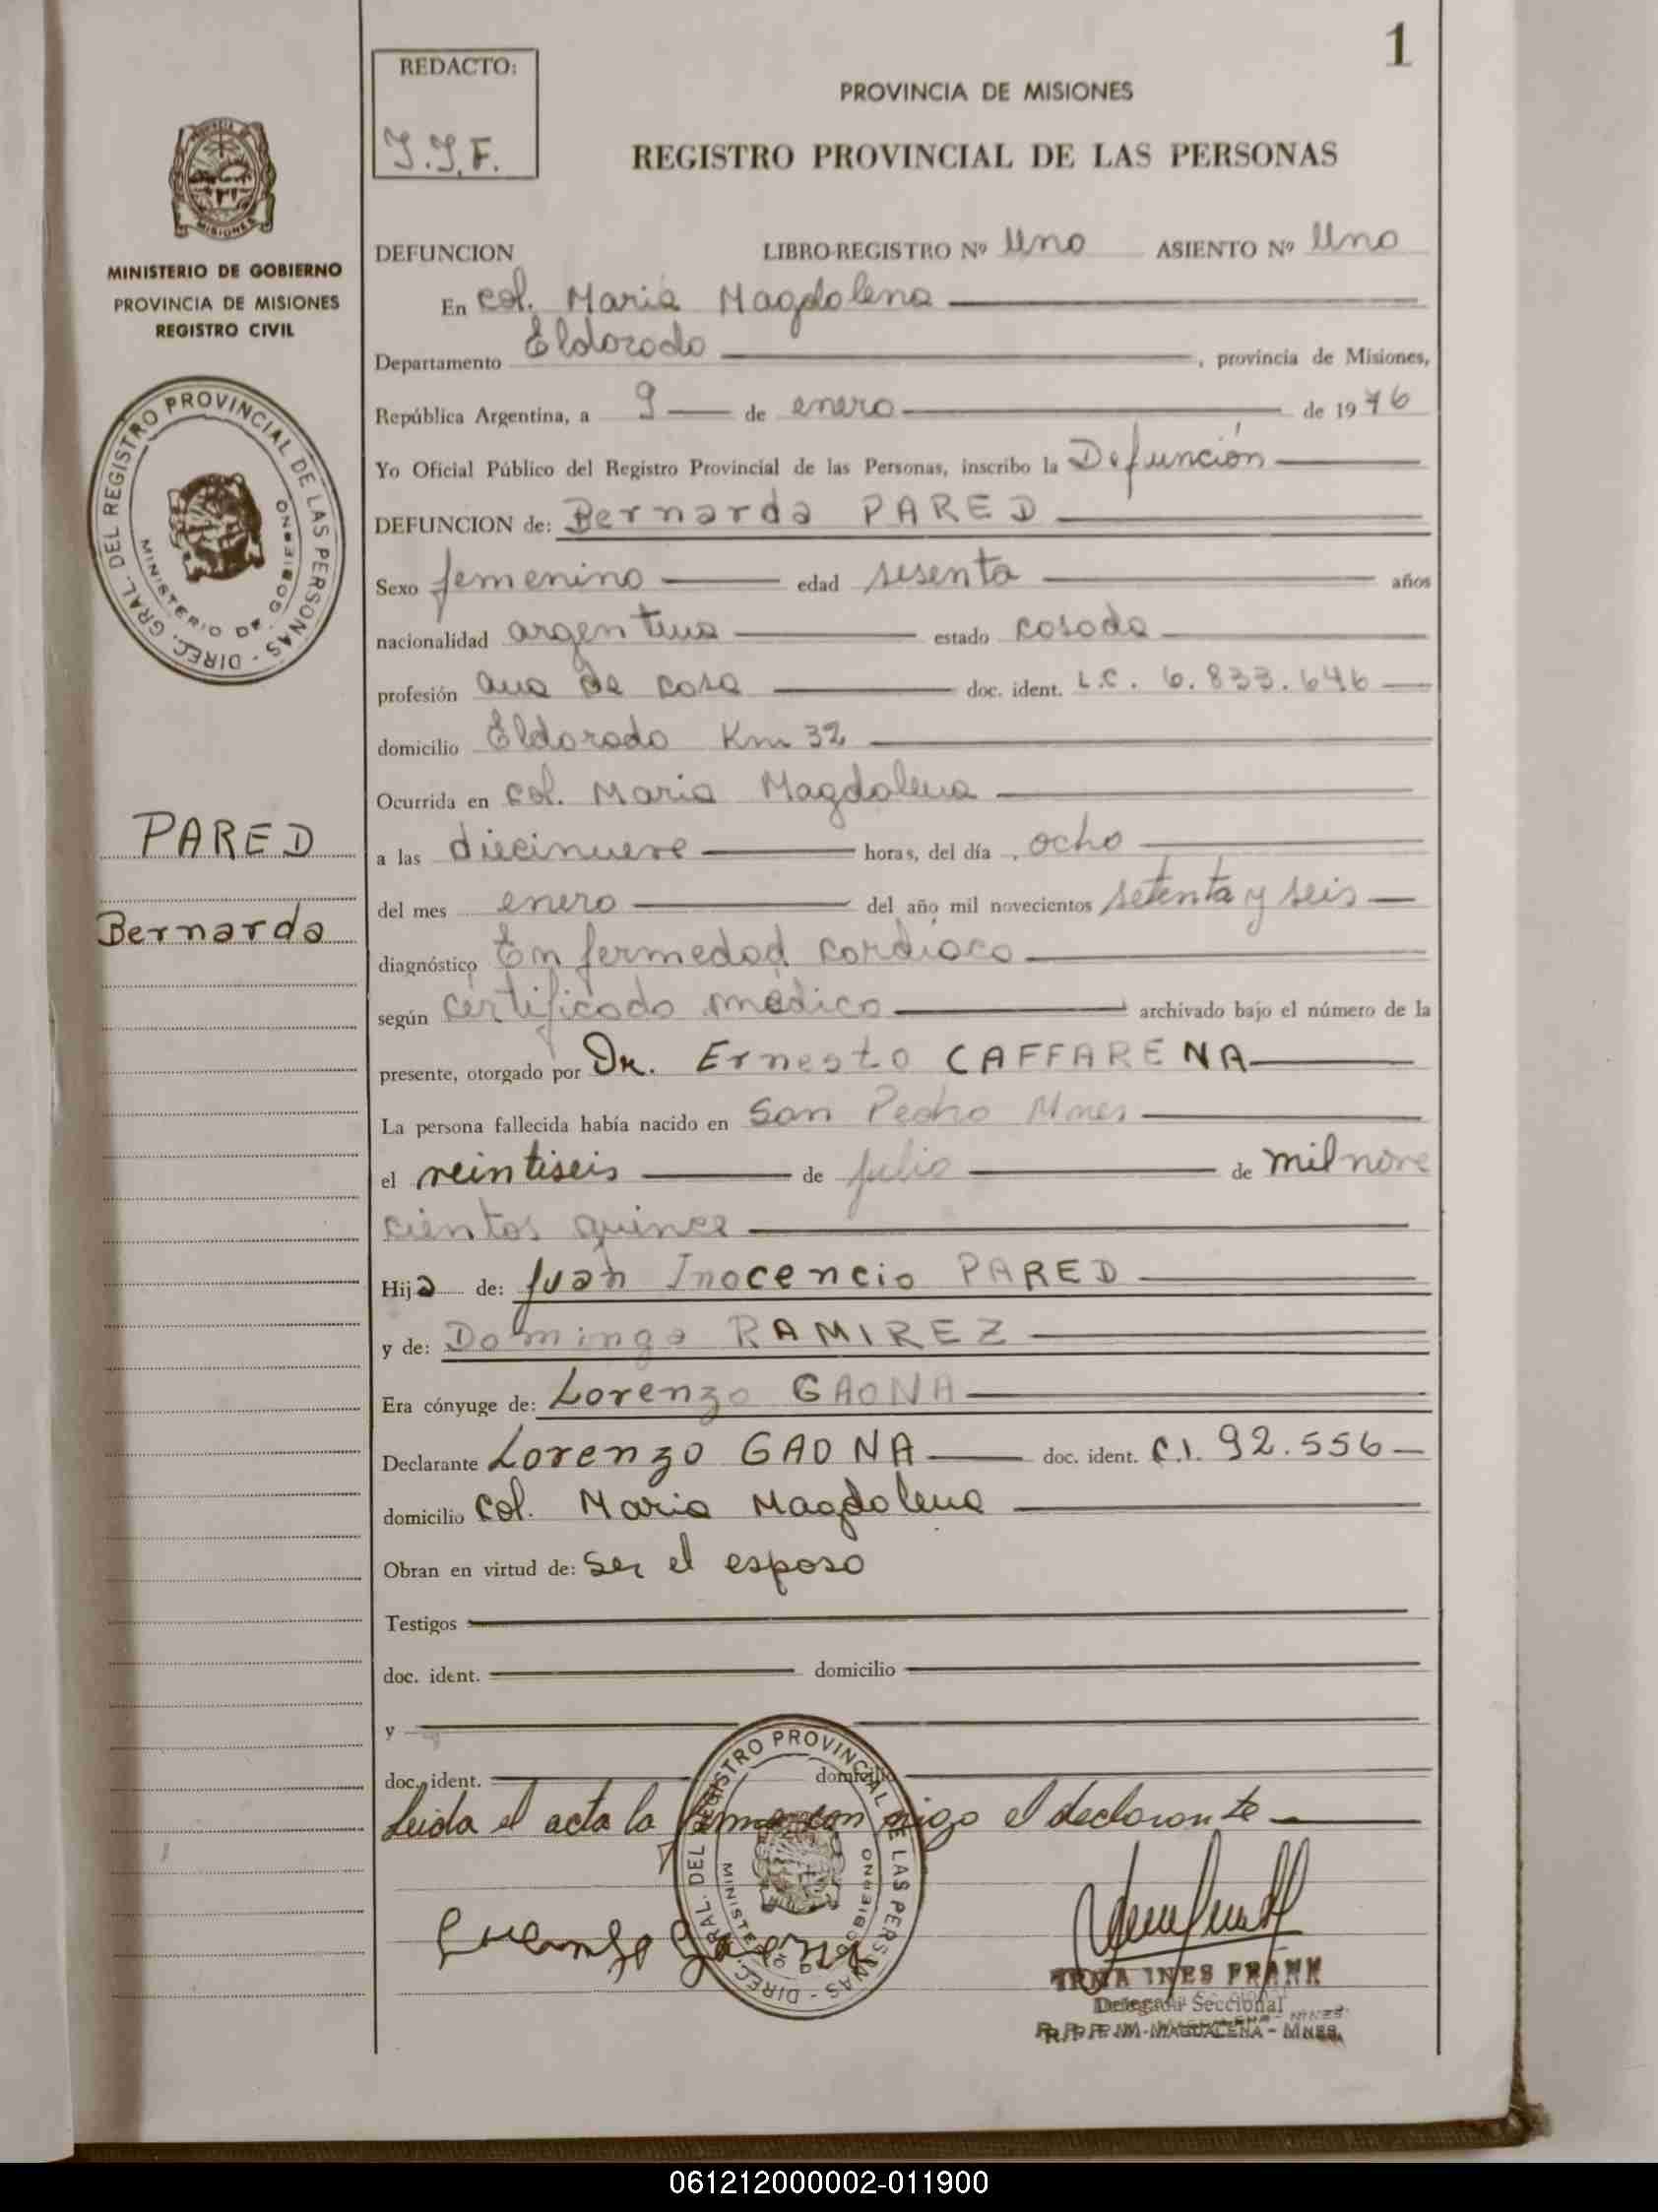 1
REDACTO:
PROVINCIA DE MISIONES
REGISTRO PROVINCIAL DE LAS PERSONAS
MISIONES
MINISTERIO DE GOBIERNO
PROVINCIA DE MISIONES
REGISTRO CIVIL
DIREC. GRAL. DEL REGISTRO PROVINCIAL DE LAS PERSONAS -
MINISTERIO DE GOBIERNO
PARED
Bernarda
DEFUNCION LIBRO-REGISTRO Nº Uno ASIENTO Nº Uno
En Col. Maria Magdalena
Departamento Eldorado, provincia de Misiones,
República Argentina, a 9 de enero de 1976
Yo Oficial Público del Registro Provincial de las Personas, inscribo la Defunción
DEFUNCION de: Bernarda PARED
Sexo femenino edad sesenta años
nacionalidad argentina estado casada
profesión ama de casa doc. ident. L.C. 6.833.646
domicilio Eldorado Km 32
Ocurrida en Col. Maria Magdalena
a las diecinueve horas, del día ocho
del mes enero del año mil novecientos setenta y seis
diagnóstico Enfermedad cardíaca
según certificado médico archivado bajo el número de la
presente, otorgado por Dr. Ernesto CAFFARENA
La persona fallecida había nacido en San Pedro Mnes
el veintiseis de julio de mil nove
cientos quince
Hija de: Juan Inocencio PARED
y de: Dominga RAMIREZ
Era cónyuge de: Lorenzo GAONA
Declarante Lorenzo GAONA doc. ident. C.I. 92.556
domicilio Col. Maria Magdalena
Obran en virtud de: Ser el esposo
Testigos
doc. ident. domicilio
y
doc. ident. domicilio
Leida el acta la firma con migo el declarante
DIREC. GRAL. DEL REGISTRO PROVINCIAL DE LAS PERSONAS -
MINISTERIO DE GOBIERNO
Gaona
INES FRANK
Delegada Seccional
MAGDALENA - MNES.
061212000002-011900